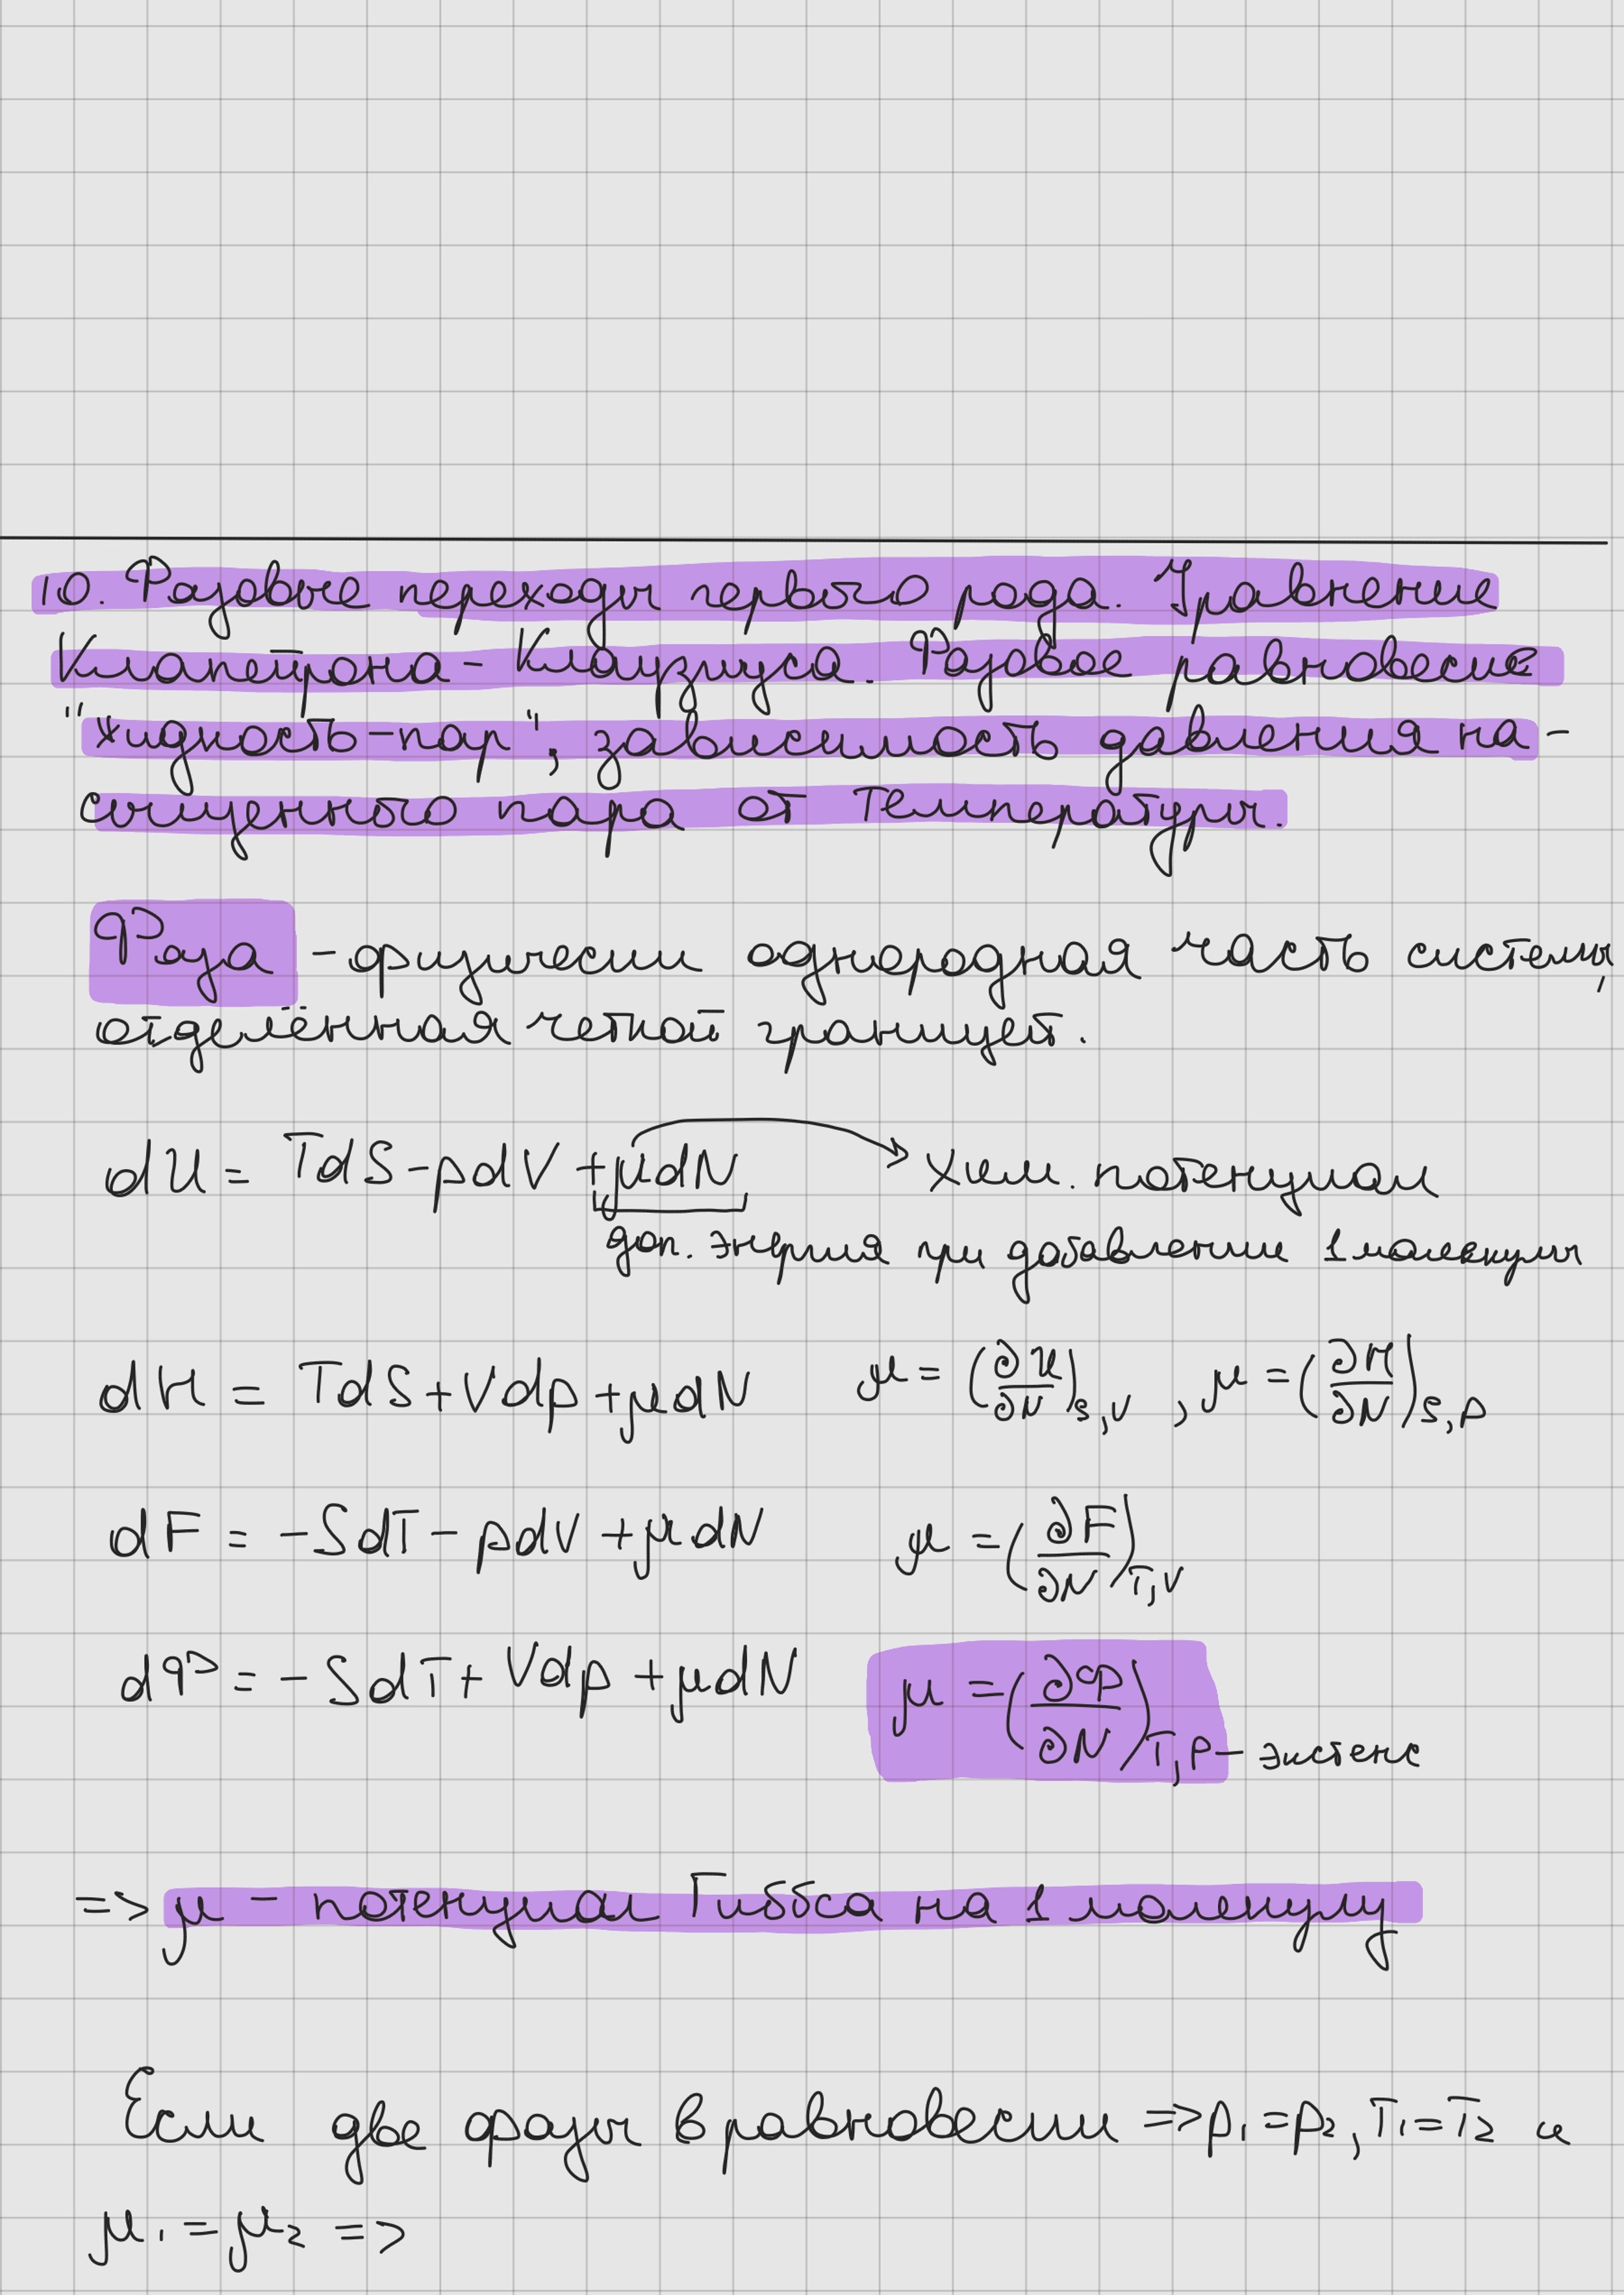 10. Фазовые переходы первого рода. Уравнение
Клапейрона-Клаузиуса. Фазовое равновесие
"жидкость-пар", зависимость давления на-
сыщенного пара от температуры.
Фаза - физически однородная часть системы,
отделённая четкой границей.
dU = TdS - pdV + μdN → Хим. потенциал
доп. энергия при добавлении 1 молекулы
dH = TdS + Vdp + μdN μ = (∂U/∂N)S,V , μ = (∂H/∂N)S,p
dF = -SdT - pdV + μdN μ = (∂F/∂N)T,V
dФ = -SdT + Vdp + μdN μ = (∂Ф/∂N)T,P - экстенс
=> μ - потенциал Гиббса на 1 молекулу
Если две фазы в равновесии => p₁ = p₂, T₁ = T₂ и
μ₁ = μ₂ =>